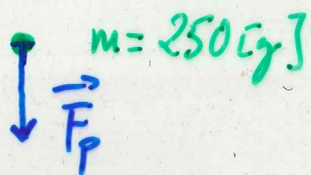 m = 250 [g]
F⃗ₚ